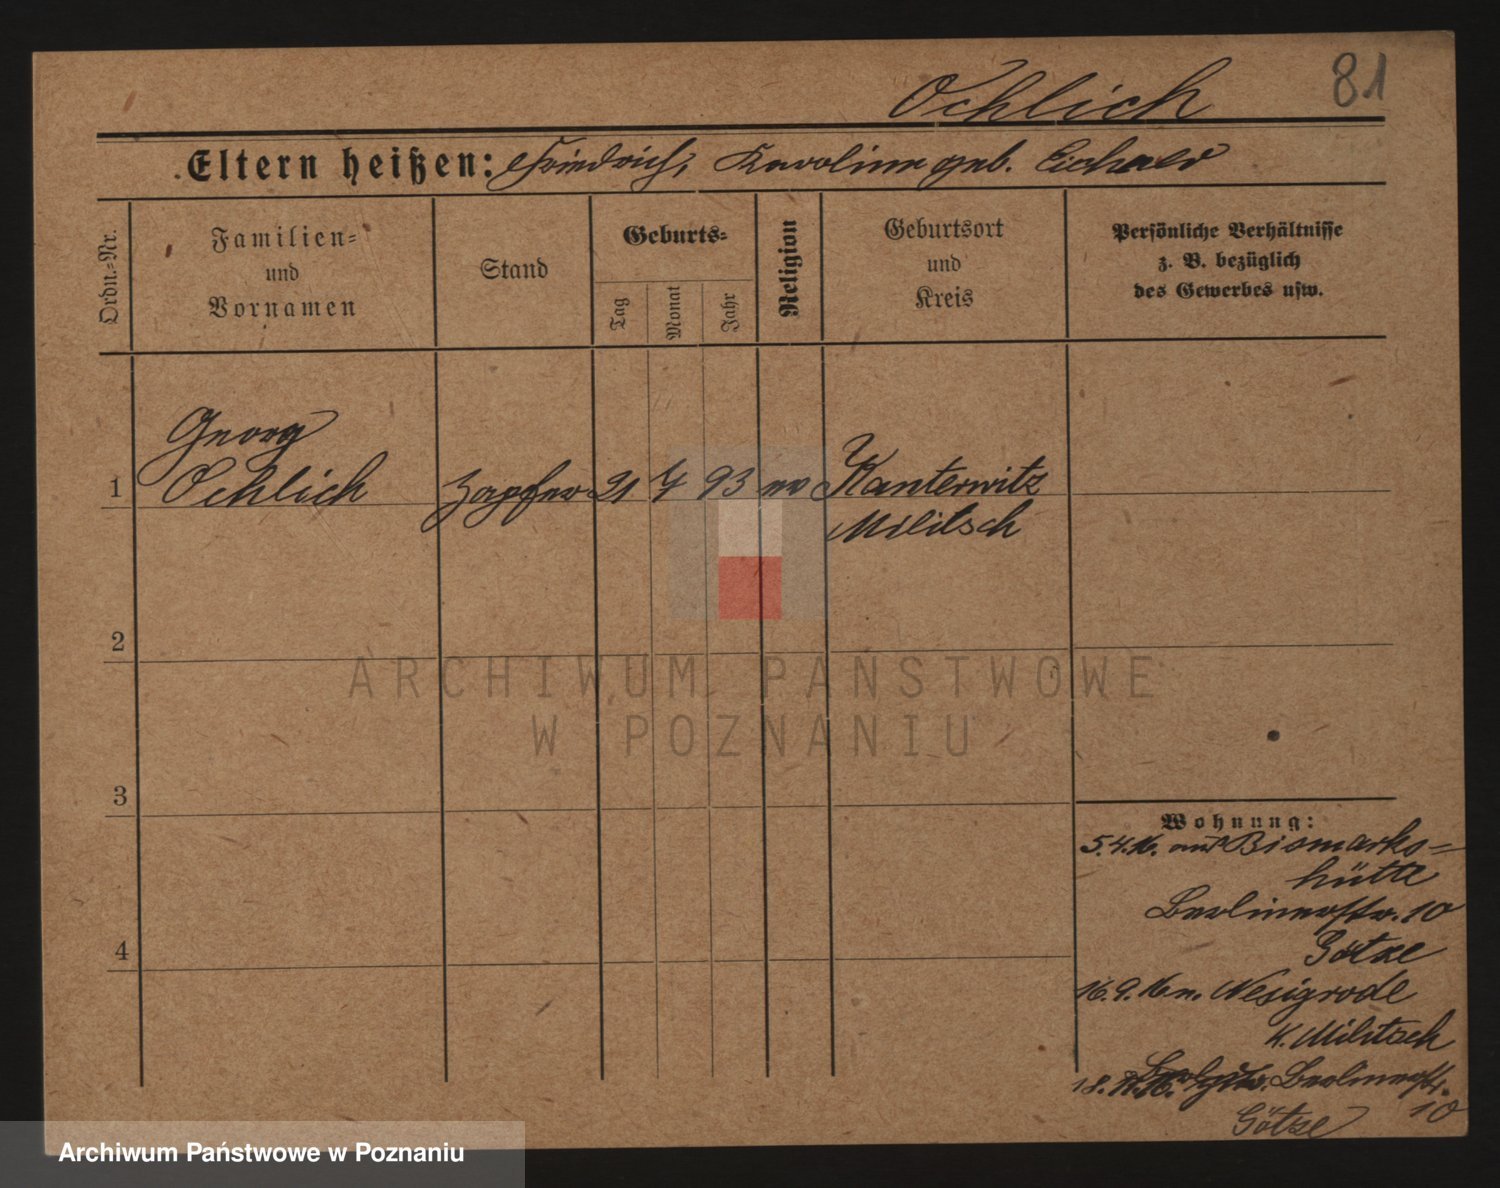 Ochlich 81
Eltern heißen: Friedrich, Karoline geb.
Ordn.-Nr.
Familien-
und
Vornamen
Stand
Geburts-
Tag
Monat
Jahr
Religion
Geburtsort
und
Kreis
Persönliche Verhältnisse
z. B. bezüglich
des Gewerbes usw.
Georg
1 Ochlich Zapfer 21 7 93 ev Kanterwitz
Militsch
2
ARCHIWUM PAŃSTWOWE
W POZNANIU
3
Wohnung:
5.4.16. aus Bismarks=
hütte
Berlinerstr. 10
Götze
16.9.16 n. Wesigrode
K. Militsch
18. Berlinerstr.
10
Götze
4
Archiwum Państwowe w Poznaniu